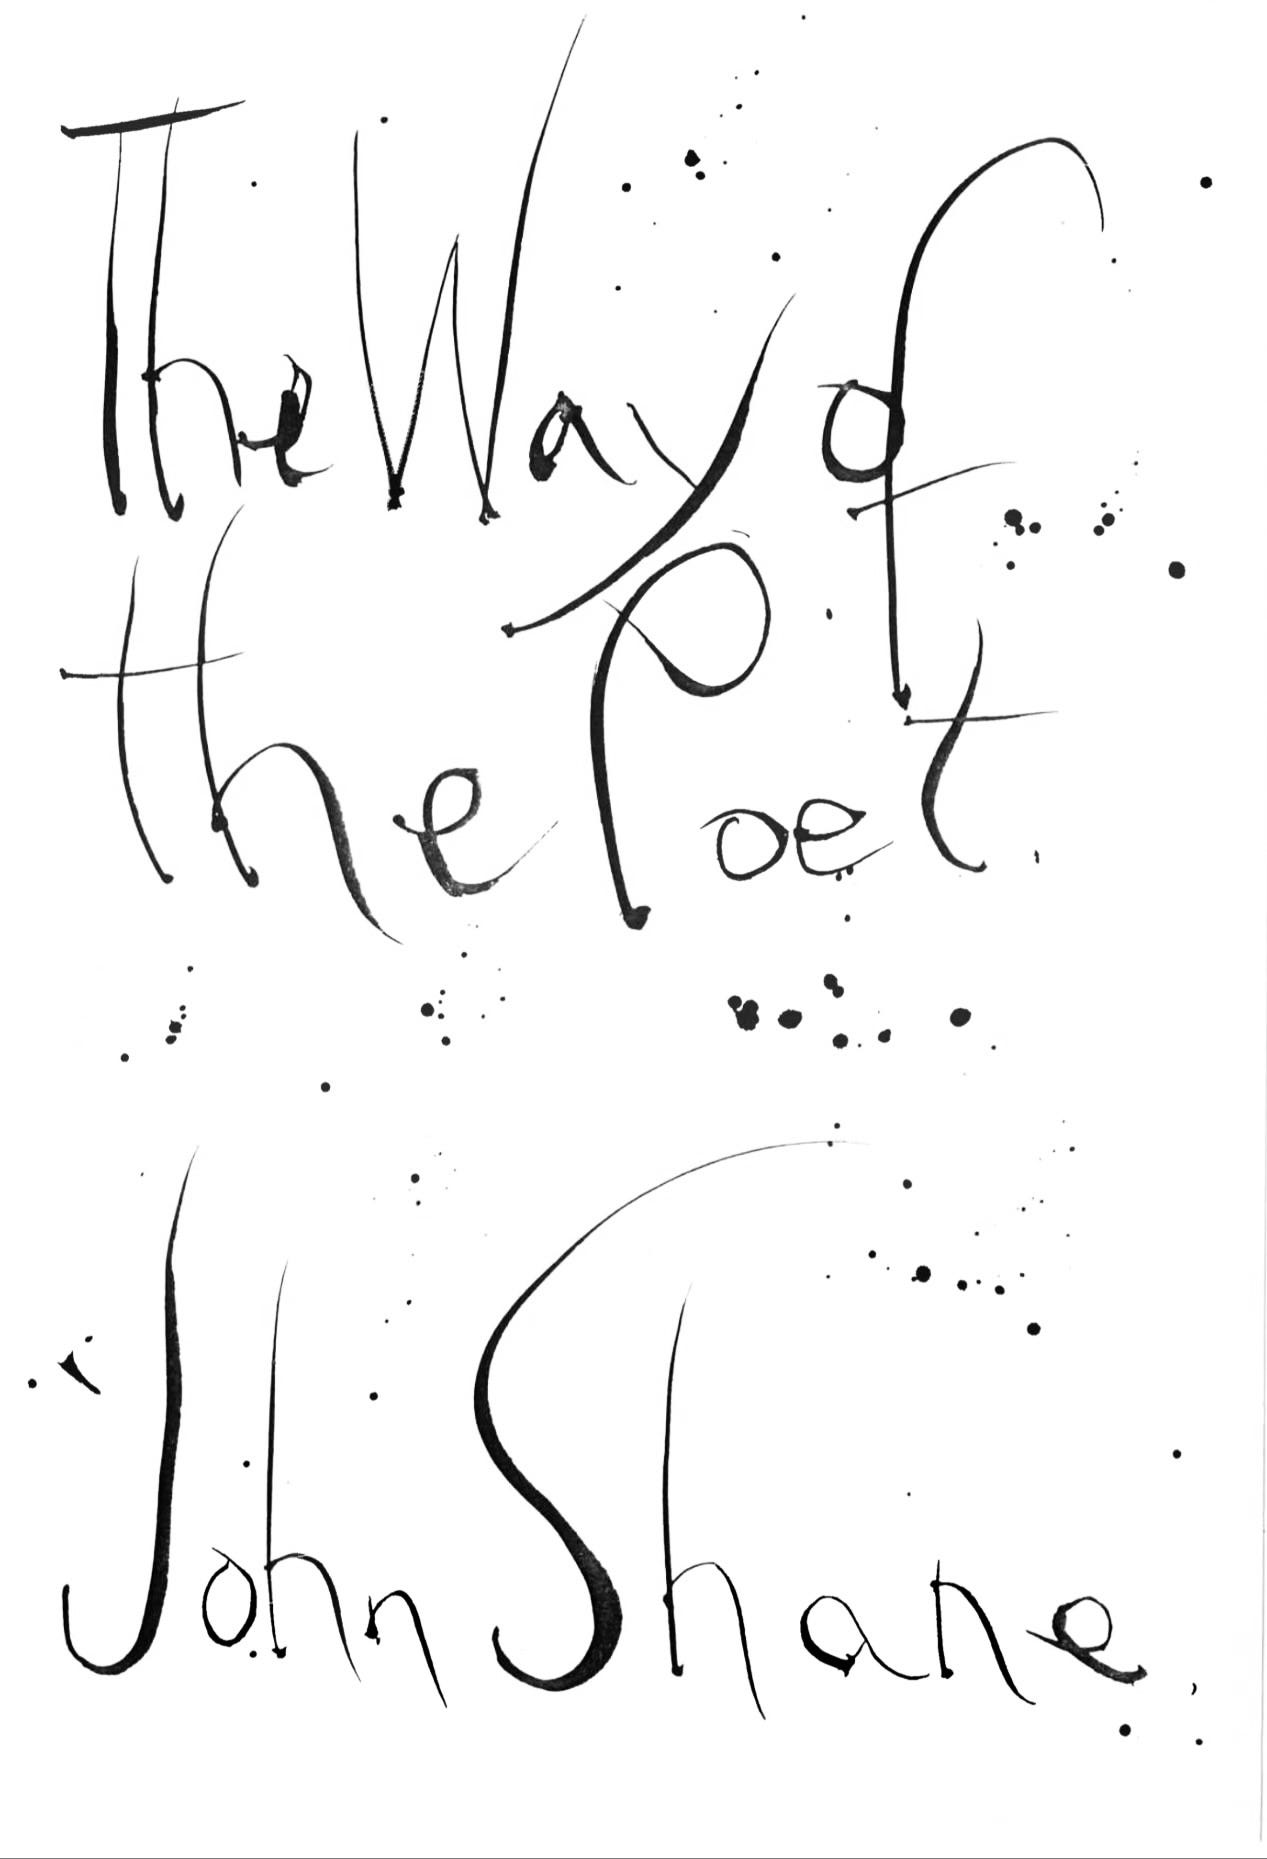 The Way of
the Poet.
John Shane.